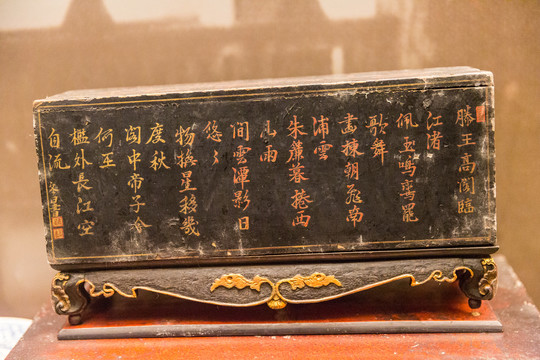 滕王高阁临
江渚
佩玉鸣鸾罢
歌舞
画栋朝飞南
浦云
朱簾暮捲西
山雨
间雲潭影日
悠々
物換星移幾
度秋
阁中帝子今
何至
檻外長江空
自流